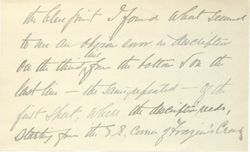 the blueprint I found what seemed
to me an obvious error in description
on the third line from the bottom & on the
last line — the same repeated — of the
first sheet, where the description reads,
starting from the S.E. corner of Frazier's Creek